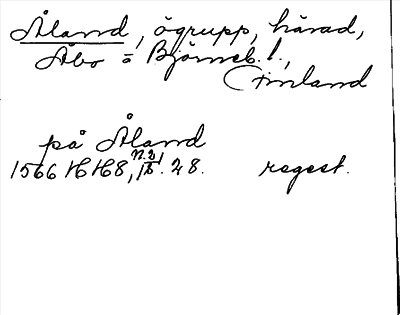 Åland, ögrupp, härad,
Åbo o Björneb. l.,
Finland
på Åland
1566 HH 8, 28. regest.